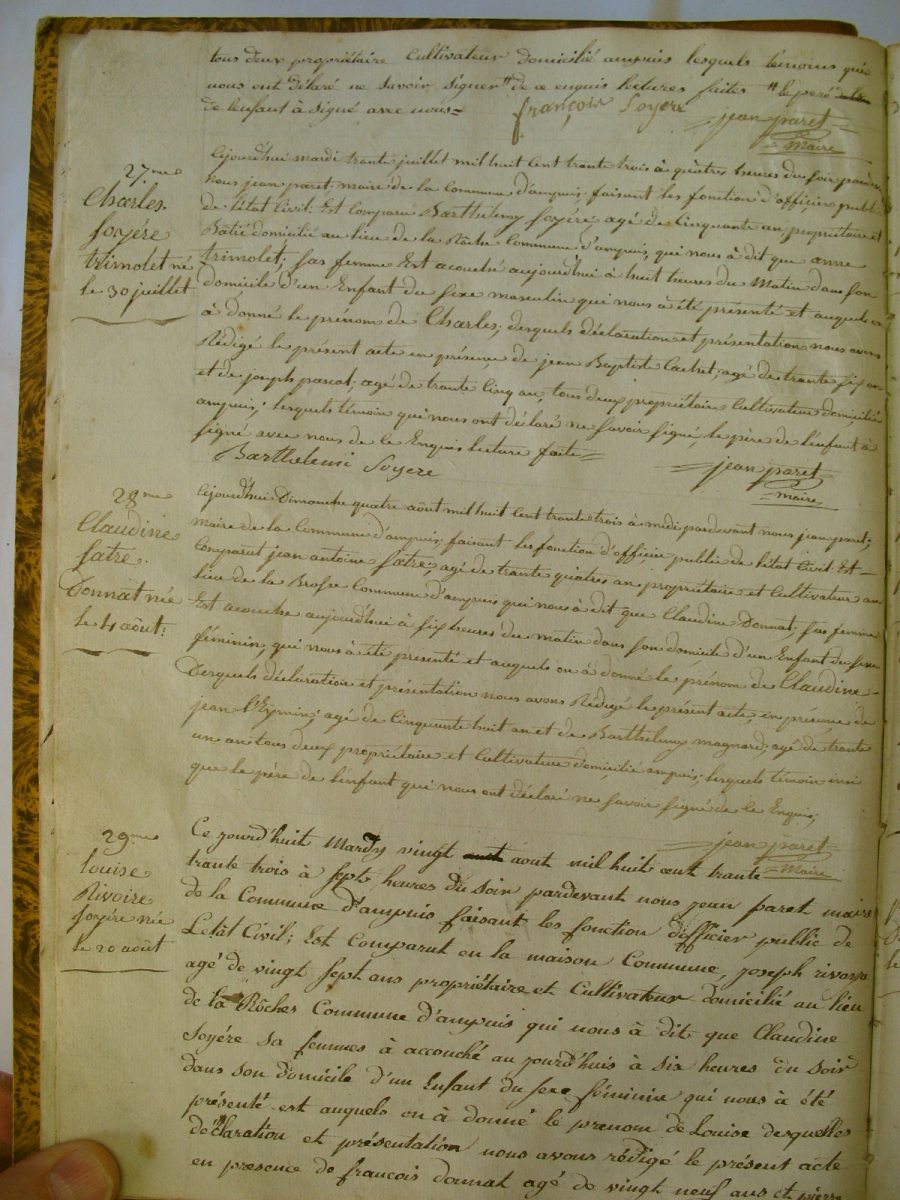 tous deux propriétaire Cultivateur domicilié ampuis lesquels témoins qui
nous ont déláré ne Savoir Signer # de ce enquis lectures faites # le peré
de lenfant à Signé avec nous =
françois Soyere
jean paret
Maire
27me
Charles
Soyére
trimolet né
le 30 juillet
Cejourd'hui mardi trante juillet mil huit Cent trante trois à quatres heures du soir pardevant
nous jean paret maire de la Commune d'ampuis, faisant les fonction d'officier public
de l'état Civil. Est Comparu Barthelemy Soyère agé de Cinquante an, propriétaire et
Bâtié domicilié au lieu de la Rôche Commune d'ampuis, qui nous à dit que anne
trimolet; sas femme Est acouché aujourd'hui à huit heures du Matin dans son
domicile d'un Enfant du sexe masculin qui nous à été présenté et auquels on
à donné le prénom de Charles; desquels déclaration et présentation nous avons
Rédigé le présent acte en présence de jean Baptiste agé de trante six an
et de joseph pascal, agé de trante Cinq an, tous deux propriétaire Cultivateur domicilié
ampuis; lesquels témoin qui nous ont déclaré ne Savoir signé le père de lenfant à
signé avec nous de le Enquis lecture faite =
Barthelemi Soyere
jean paret
maire
28me
Claudine
fatre
Donnat née
le 4 août
Cejourd'hui Dimanche quatre août mil huit Cent trante trois à midi pardevant nous jean paret;
Maire de la Commune d'ampuis faisant les fonction d'officier public de l'état Civil. Est
Comparut jean antoine fatre, agé de trante quatres an propriétaire et Cultivateur au
lieu de la Brosse Commune d'ampuis qui nous à dit que Claudine Donnat, sas femme
Est acouché aujourd'hui à six heures du matin dans son domicile d'un Enfant du sexe
féminin, qui nous à été présenté et auquels on à donné le prénom de Claudine
Desquels déclaration et présentation nous avons Rédigé le present acte, en présence de
jean l'Eymin; agé de Cinquante huit an et de Barthelemy magnard; agé de trante
un an tous deux propriétaire et Cultivateur domicilié ampuis; lesquels témoin insi
que le père de lenfant qui nous ont déclaré ne savoir signé de le Enquis;
jean paret
Maire
29me
louise
Rivoire
soyère née
le 20 août
Ce jourd'huit Mardy vingt aout mil huit cent trante
trante trois à sept heures du soir pardevant nous jean paret maire
de la Commune d'ampuis faisant les fonction d'officier public de
Letât Civil; Est Comparut en la maison Commune, joseph rivoire
agé de vingt sept ans propriétaire et Cultivateur domicilié au lieu
de la Rôches Commune d'ampuis qui nous à dit que Claudine
Soyére sa femmes à accouché au jourd'huis à six heures du soir
dans son domicile d'un Enfant du sexe féminin qui nous à été
présenté est auquels on à donné le prenom de Louise desquelles
déclaration et présentation nous avons rédigé le présent acte
en presence de francois donnat agé de vingt neuf ans et pierre